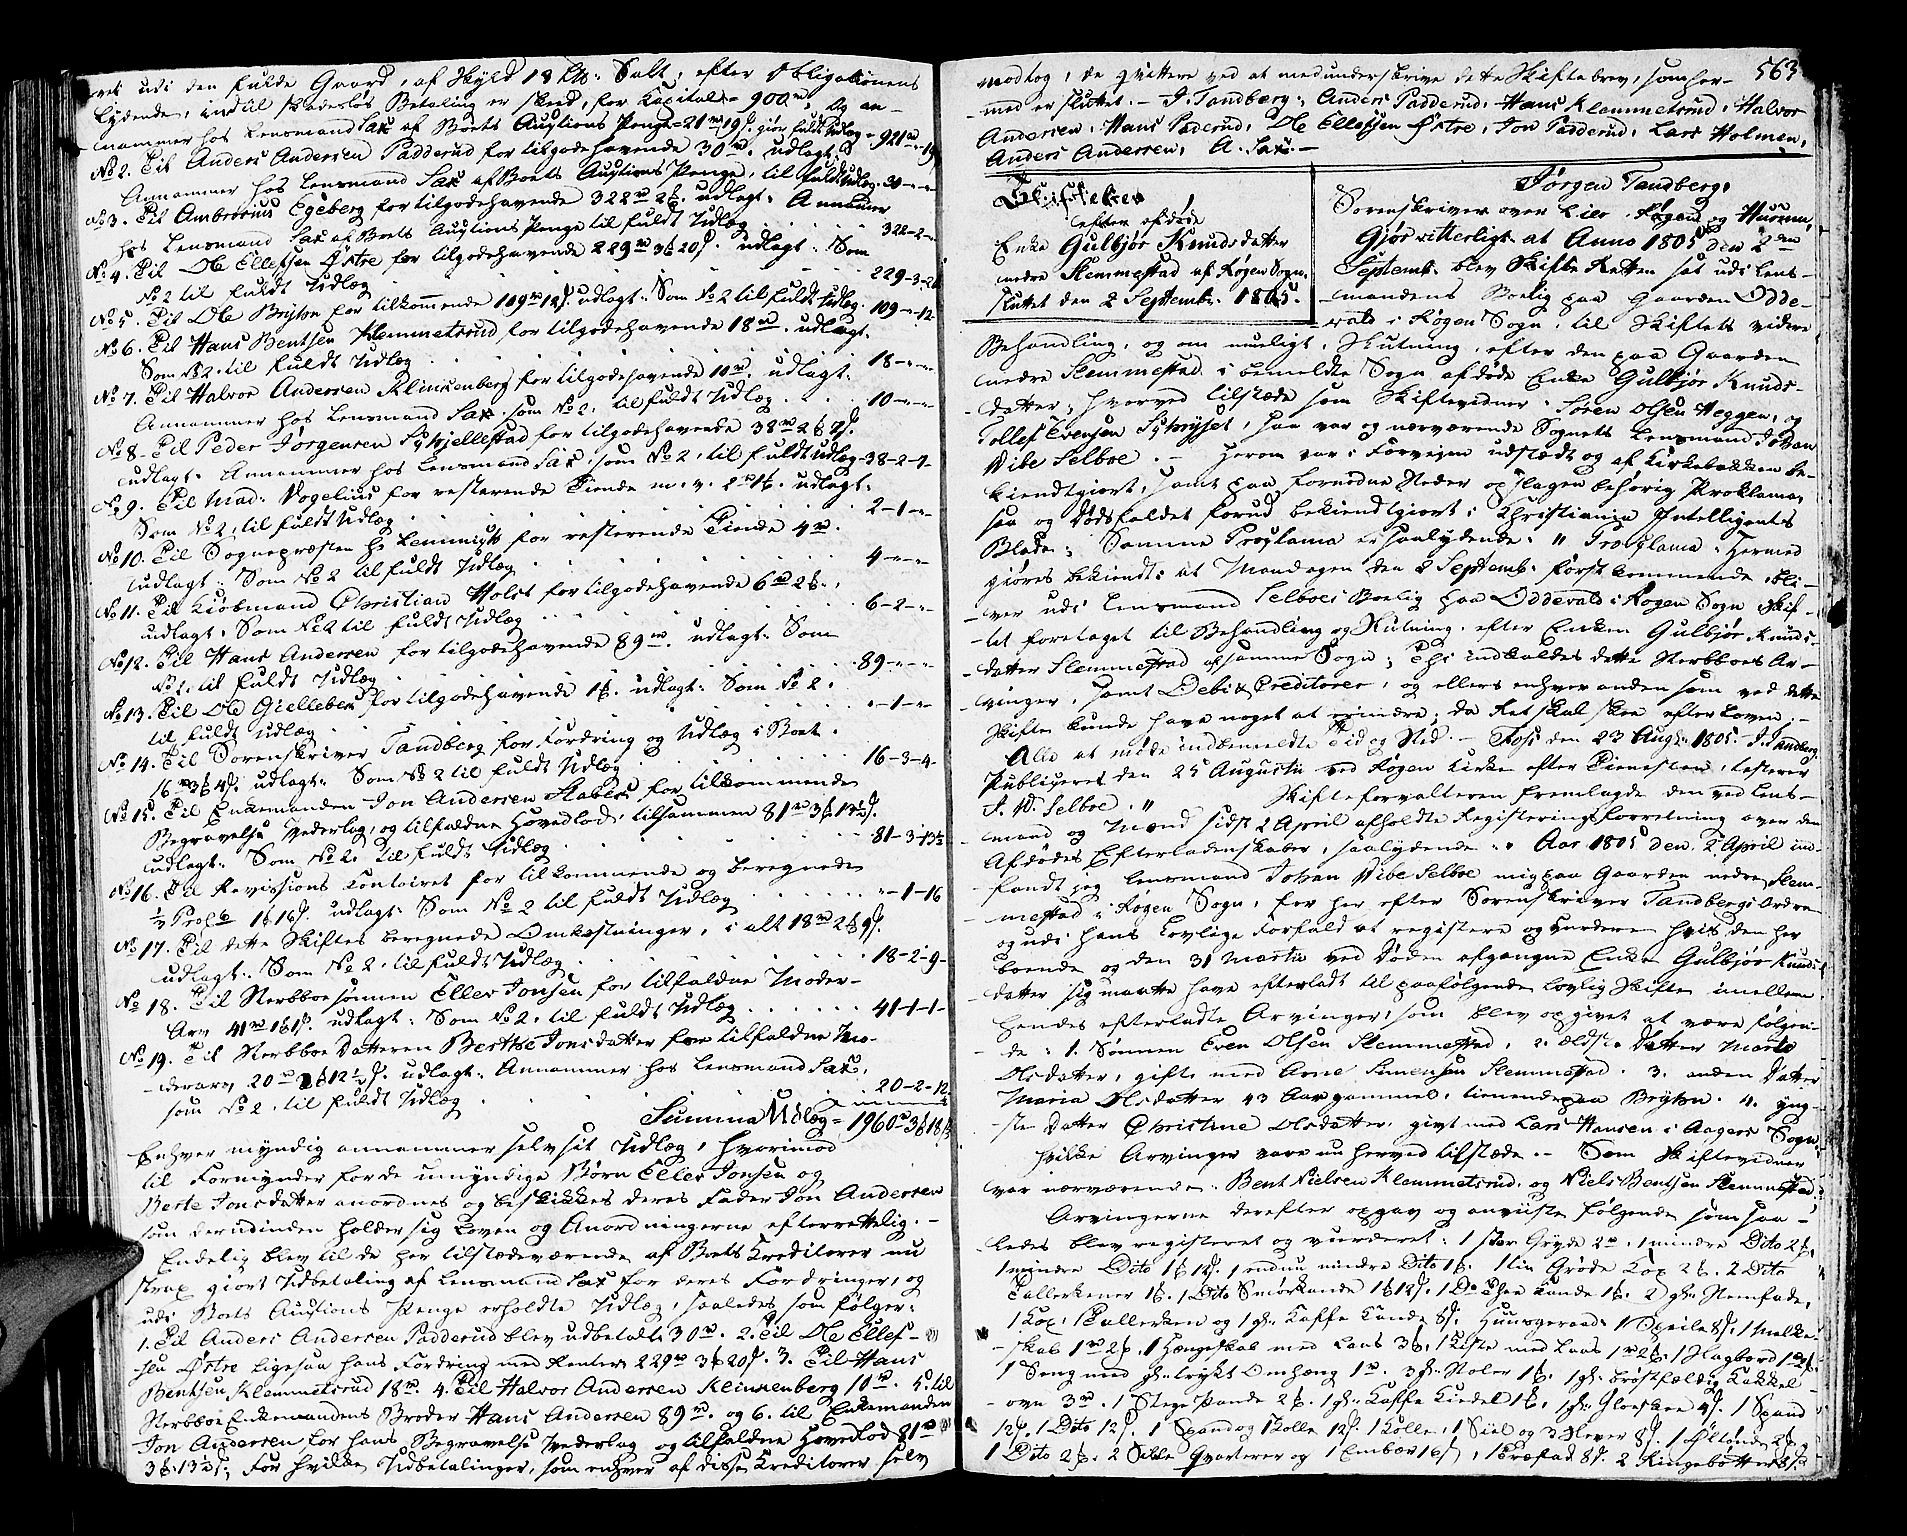 udi den fulde Gaard, af Skyld 18 Lb: Salt, efter Obligationens
lydende, indtil skadesløs Betaling er skeed, for Kapital = 900 rd, Og an-
nammer hos Lensmand Sax af Boets Auctions Penge = 21 rd 19 s. giør fuldt Udlæg = 921 rd - 19
No 2. Til Anders Andersen Padderud for tilgodehavende 30 rd. udlagt:
Annammer hos Lensmand Sax af Boets Auctions Penge, til fuldt Udlæg - 30 - " - "
No 3. Til Ambrosius Egeberg for tilgodehavende 322 rd 2 ß. udlagt: Annammer
hos Lensmand Sax af Boets Auctions Penge til fuldt Udlæg . . . 322 - 2 - "
No 4. Til Ole Ellefsen Østre for tilgodehavende 229 rd 3 ß 20 s. udlagt: Som
No 2 til fuldt Udlæg . . . 229 - 3 - 20
No 5. Til Ole Bryhn for tilkommende 109 rd 12 s. udlagt: Som No 2 til fuldt Udlæg. 109 - " - 12
No 6. Til Hans Bentsen Klemmetsrud for tilgodehavende 18 rd. udlagt:
Som No 2. til fuldt Udlæg . . . 18 - " - "
No 7. Til Halvor Andersen Klinkenberg for tilgodehavende 10 rd. udlagt:
Annammer hos Lensmand Sax. som No 2. til fuldt Udlæg . . . 10 - " - "
No 8. Til Peder Jørgensen for tilgodehavende 38 rd 2 ß 7 s.
udlagt: Annammer hos Lensmand Sax: som No 2, til fuldt Udlæg - 38 - 2 - 7 -
No 9. Til Mad: Vogelius for resterende Tiende m. v. 2 rd 1 ß. udlagt:
Som No 2, til fuldt Udlæg . . . 2 - 1 - "
No 10. Til Sognepræsten Hr for resterende Tiende 4 rd.
udlagt: Som No 2 til fuldt Udlæg . . . 4 - " - "
No 11. Til Kiøbmand Christian Holst for tilgodehavende 6 rd 2 ß.
udlagt: Som No 2 til fuldt Udlæg . . . 6 - 2 - "
No 12. Til Hans Andersen for tilgodehavende 89 rd. udlagt: Som
No 2. til fuldt Udlæg . . . 89 - " - "
No 13. Til Ole Giellebek for tilgodehavende 1 ß. udlagt: Som No 2.
til fuldt Udlæg . . . " - 1 - "
No 14. Til Sorenskriver Tandberg for Fordring og Udlæg i Boet.
16 rd 3 ß 4 s. udlagt: Som No 2 til fuldt Udlæg . . . 16 - 3 - 4 -
No 15. Til Enkemanden Jon Andersen for tilkommende
Begravelse Vederlag, og tilfaldne Hovedlod, tilsammen 81 rd 3 ß 13½ s.
udlagt: Som No 2. til fuldt Udlæg . . . 81 - 3 - 13½
No 16. Til Revissions Contoiret for tilkommende og beregnede
½ Proc 1 ß 16 s. udlagt: Som No 2 til fuldt Udlæg . . . " - 1 - 16
No 17. Til dette Skiftes beregnede Omkostninger, i alt 18 rd 2 ß 9 s.
udlagt: Som No 2. til fuldt Udlæg . . . 18 - 2 - 9 -
No 18. Til Sterbboe sønnen Eller Jonsen for tilfaldne Moder-
Arv 41 rd 1 ß 1 s. udlagt: Som No 2. til fuldt Udlæg . . . 41 - 1 - 1 -
No 19. Til Sterbboe Datteren Berthe Jonsdatter for tilfaldne Mo-
derarv 20 rd 2 ß 12½ s. udlagt: Annammer hos Lensmand Sax,
som No 2. til fuldt Udlæg . . . 20 - 2 - 12½
Summa Udlæg = 1960 rd 3 ß 18½
Enhver myndig annammer selv sit Udlæg, hvorimod
til Formynder for de umyndige Børn Eller Jonsen og
Berte Jonsdatter anordnes og beskikkes deres Fader Jon Andersen
som derudinden holder sig Loven og Anordningerne efterrettelig. -
Endelig blev til de her tilstedeværende af Boets Creditorer nu
strax giort Udbetaling af Lensmand Sax for deres Fordringer, og
udi Boets Auctions Penge erholdte Udlæg, saaledes som følger:
1. Til Anders Andersen Padderud blev udbetalt 30 rd. 2. Til Ole Ellef-
sen Østre ligesaa hans Fordring med Renter 229 rd 3 ß 20 s. 3. Til Hans
Bentsen Klemmetsrud 18 rd. 4. Til Halvor Andersen Klinkenberg 10 rd. 5. til
Sterbboe Enkemandens Broder Hans Andersen 89 rd. og 6. til Enkemanden
Jon Andersen for hans Begravelse Vederlag og tilfaldne Hovedlod 81 rd
3 ß 13½ s. For hvilke Udbetalinger, som enhver af disse Creditorer selv
563
modtog, de qvittere ved at medunderskrive dette Skiftebrev, som her-
med er sluttet. - J. Tandberg, Anders Padderud, Hans Klemmetsrud, Halvor
Andersen, Hans Paderud, Ole Ellefsen Østre, Jon Padderud, Lars Holmen,
Anders Andersen, A. Sax. -
Skiftebrev
efter afdøde
Enke Gulbjør Knudsdatter
nedre Slemmestad af Røgen Sogn,
sluttet den 2 Septembr. 1805.
Jørgen Tandberg,
Sorenskriver over Lier, Røgen og Hurum,
Giør vitterligt at Anno 1805 den 2den
Septembr. blev Skifte Retten sat udi Lens-
mandens Boelig paa Gaarden Odde-
vald i Røgen Sogn, til Skiftets videre
Behandling, og om mueligt, Slutning, efter den paa Gaarden
nedre Slemmestad i bemeldte Sogn afdøde Enke Gulbjør Knuds-
datter, hvorved tilstæde som Skiftevidner: Søren Olsen Heggen, og
Tollef Evensen, saa var og nærværende Sognets Lensmand Johan
Vibe Selboe. - Herom var i Forveien udstædt og af Kirkebakken be-
kiendtgiort, samt paa fornødne Steder opslagen behørig Proklama,
saa og Dødsfaldet forud bekiendtgiort i Christiania Intelligents
Blade, Samme Proklama er saalydende: " Proclama. Hermed
giøres bekiendt: at Mandagen den 2 Septemb: førstkommende, bli-
ver udi Lensmand Selboes Boelig paa Oddevald i Røgen Sogn Skif-
tet foretaget til Behandling og Slutning, efter Enken Gulbjør Knuds-
datter Slemmestad af samme Sogn; Thi indkaldes dette Sterbboes Ar-
vinger, samt Debit & Creditorer, og ellers enhver anden som ved dette
Skifte kunde have noget at erindre, da Ret skal skee efter Loven, -
Alle at møde indbemeldte Tid og Sted. - Foss den 23 Aug: 1805. J. Tandberg,
Publiceret den 25 Augusti ved Røgen Kirke efter Tienesten, testerer
J. V. Selboe. " Skifteforvalteren fremlagde den ved Lens-
mand og Mænd sidst 2 April afholdte Registerings forretning over den
Afdødes Efterladenskaber, saalydende: " Aar 1805 den 2 April ind-
fandt jeg Lensmand Johan Vibe Selboe mig paa Gaarden nedre Slem-
mestad i Røgen Sogn, for her efter Sorenskriver Tandbergs Ordre
og udi hans Lovlige Forfald at registere og vurdere hvis den her
boende og den 31 Martii ved Døden afgangne Enke Gulbjør Knuds-
datter sig maatte have efterladt til paafølgende lovlig Skifte imellem
hendes efterladte Arvinger, som blev opgivet at være følgen-
de: 1. Sønnen Even Olsen Slemmestad, 2. ældste Datter Marte
Olsdatter, gifte med Arne Simensen Slemmestad. 3. anden Datter
Maria Olsdatter 43 Aar gammel, tienende paa Bryhn. 4. yng-
ste Datter Christine Olsdatter, givt med Lars Hansen i Aagers Sogn,
hvilke Arvinger vare nu herved tilstæde. - Som Skiftevidner
var nærværende: Bent Nielsen Klemmetsrud, og Niels Bentsen Slemmestad,
Arvingerne derefter opgav og anviiste følgende som saa-
ledes blev registeret og vurderet: 1 stor Gryde 2 rd, 1 mindre Dito 2 ß,
1 mindre Dito 1 ß 12 s. 1 endnu mindre Dito 1 ß. 1 liden Grøde Kop 2 ß. 2 Dito
Tallerkener 1 ß. 1 Dito Smørkande 1 ß 12 s. 1 Do Thee Kande 1 ß. 2 gl: Steenfade,
1 Kop, 1 Tallerken og 1 gl: Kaffe Kande 8 s. Huusgeraad: 1 Speile 8 s. 1 Melke-
skab 1 rd 2 ß. 1 Hængeskab med Laas 3 ß. 1 Kiste med Laas 1 rd 2 ß. 1 Slagbord 1 rd 2 ß.
1 Seng med gl: trykt Omhæng 1 rd. 3 gl: Stoler 1 ß. 1 gl: brøstfældig Kakkel-
ovn 3 rd. 1 Stege Pande 2 ß. 1 gl: Kaffe Kiedel 1 ß. 1 gl: 4 s. 1 Spand
12 s. 1 Dito 12 s. 1 Spand og 1 Kolle 12 s. 1 Kolle, 1 Siel og 3 8 s. 1 Øltønde 2 ß.
1 Dito 2 ß. 2 Silde Qvarterer og 1 Embær 16 s, 1 8 s. 2 Ringebøtter 8 s.